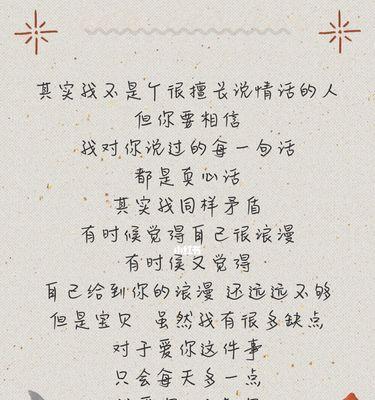 其实我不是个很擅长说情话的人
但你要相信
我对你说过的每一句话
都是真心话
其实我同样矛盾
有时候觉得自己很浪漫
小红书
有时候又觉得
自己给到你的浪漫 还远远不够
但是宝贝 虽然我有很多缺点
对于爱你这件事
只会每天多一点